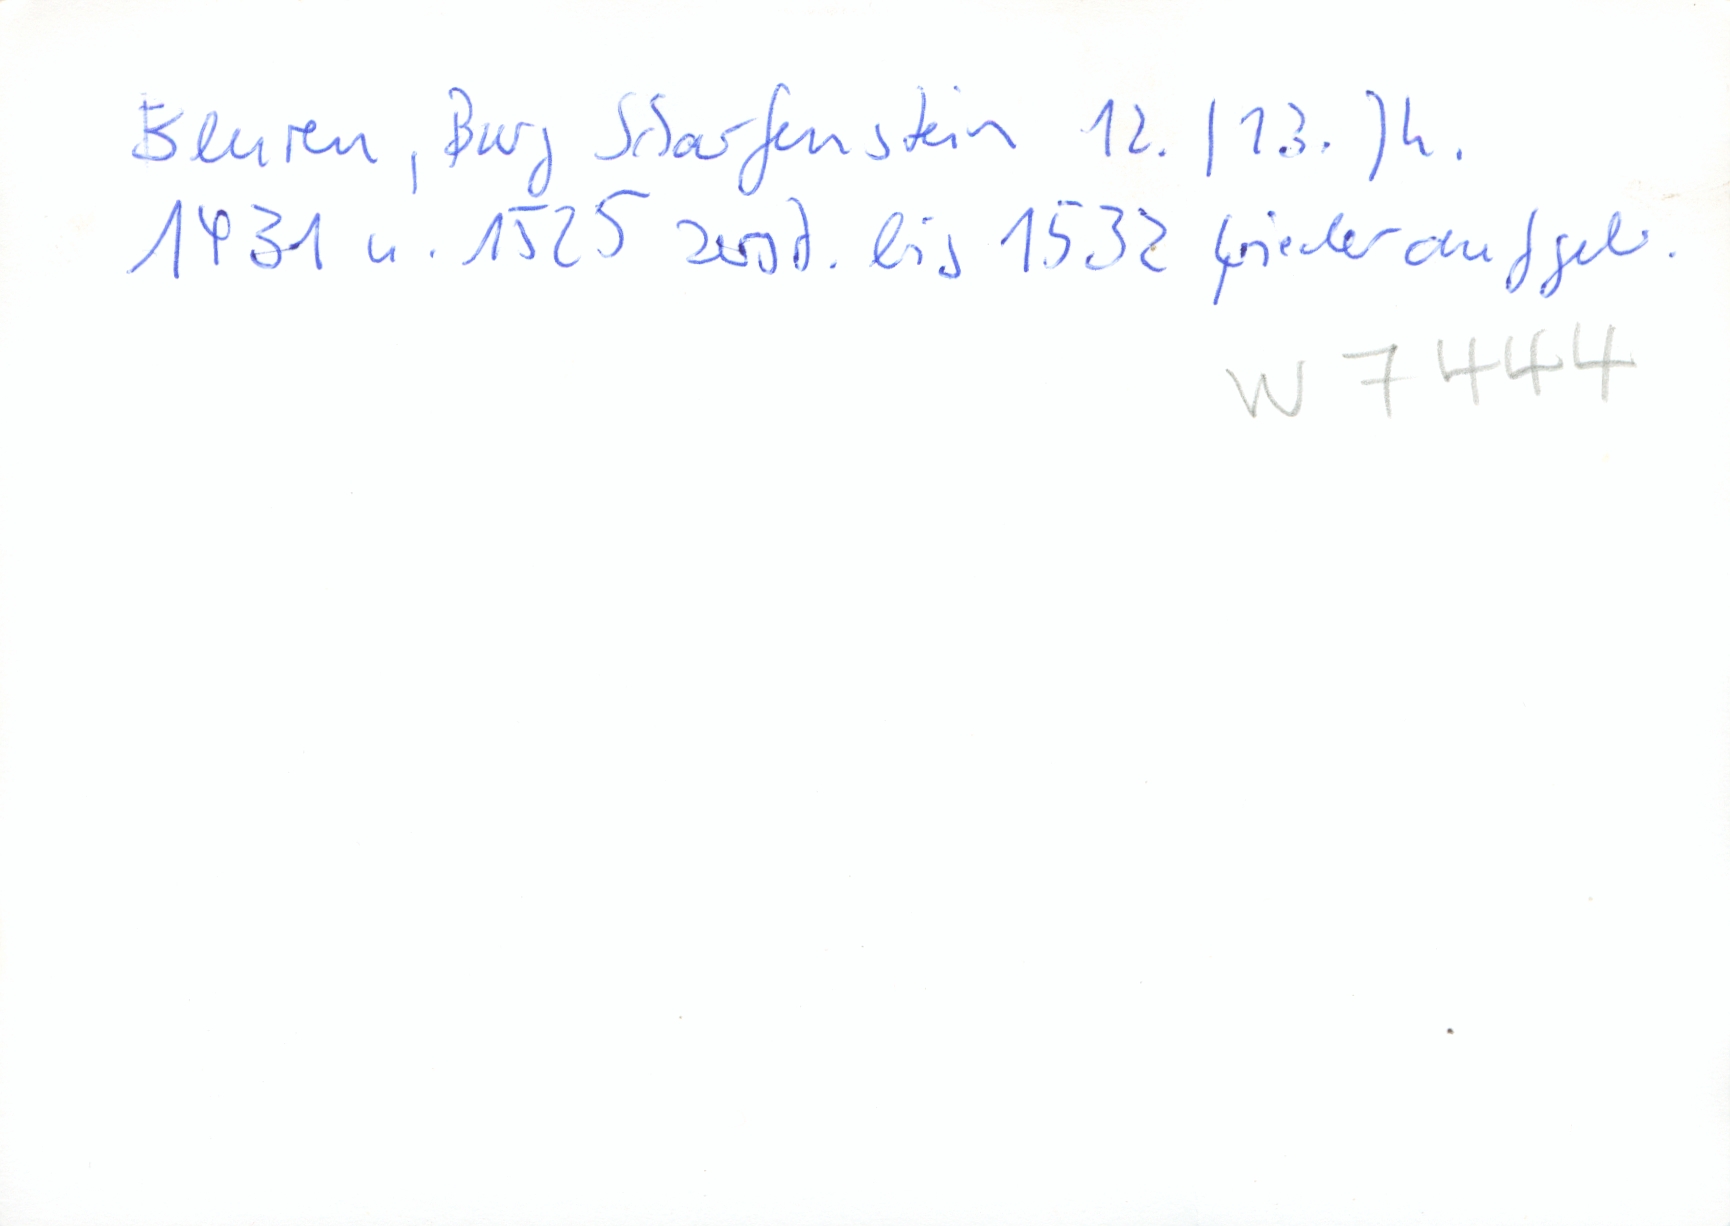 Beuren, Burg Scharfenstein 12. / 13. Jh.
1431 u. 1525 zerst. bis 1532 wiederaufgeb.
W 7444